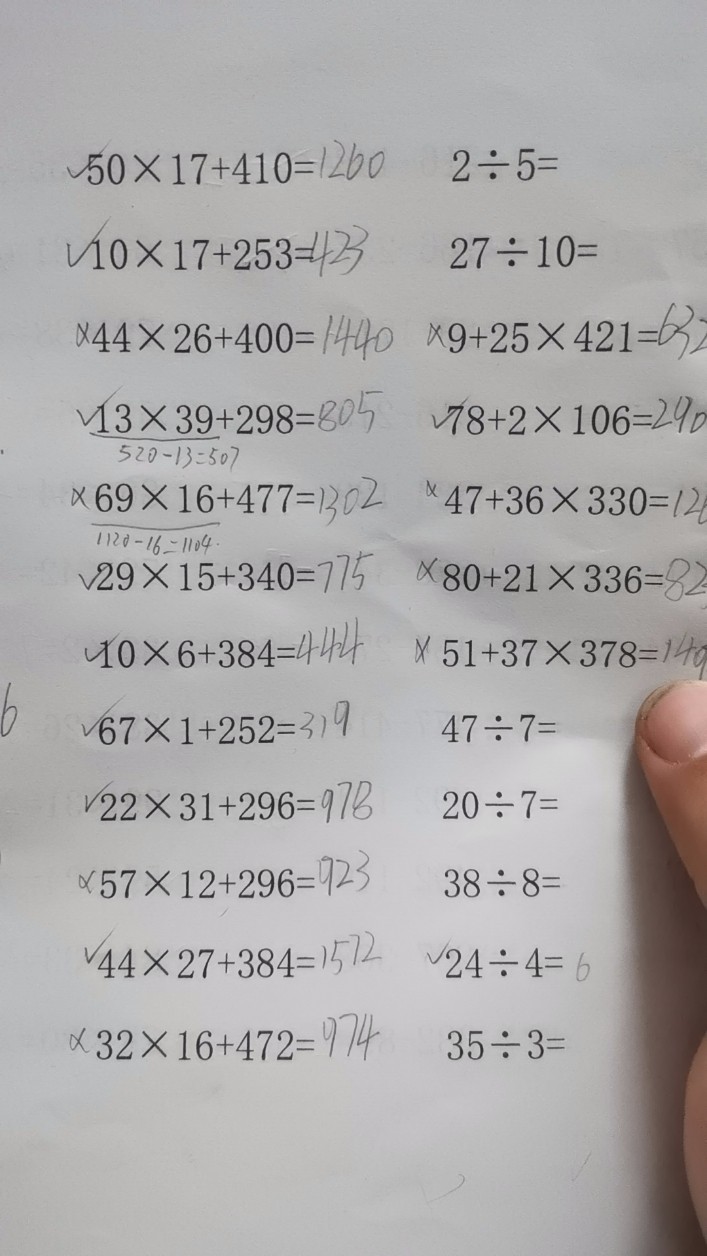 ✓50×17+410=1260 2÷5=
✓10×17+253=423 27÷10=
×44×26+400=1440 ×9+25×421=632
✓13×39+298=805 ✓78+2×106=290
520-13=507
×69×16+477=1302 ×47+36×330=12
1120-16=1104.
✓29×15+340=775 ×80+21×336=82
✓10×6+384=444 ×51+37×378=149
✓67×1+252=319 47÷7=
6
✓22×31+296=978 20÷7=
×57×12+296=923 38÷8=
✓44×27+384=1572 ✓24÷4=6
×32×16+472=974 35÷3=